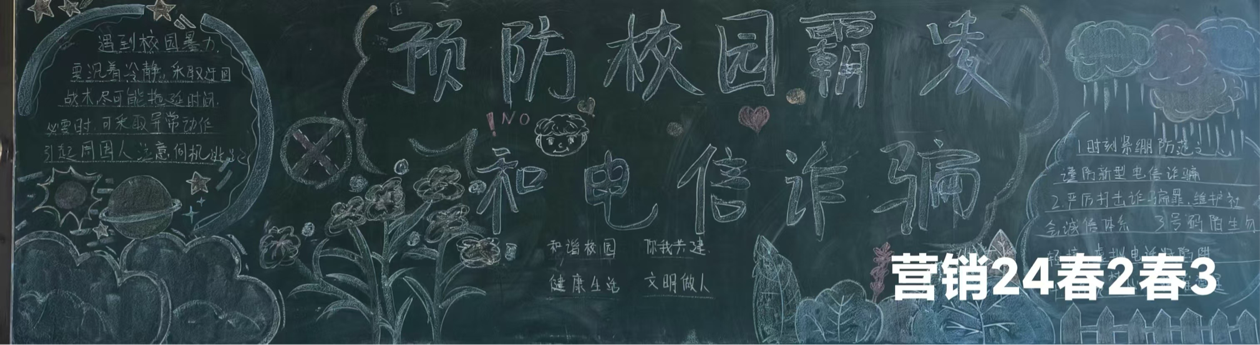 遇到校园暴力
要沉着冷静,采取迂回
战术尽可能拖延时间.
必要时,可采取异常动作
引起周围人注意伺机逃
预防校园霸凌
!NO
和电信诈骗
和谐校园 你我共建
健康生活 文明做人
1.时刻紧绷防范之
谨防新型电信诈骗
2.严厉打击诈骗犯罪,维护社
会诚信体系 3号码陌生
营销24春2春3